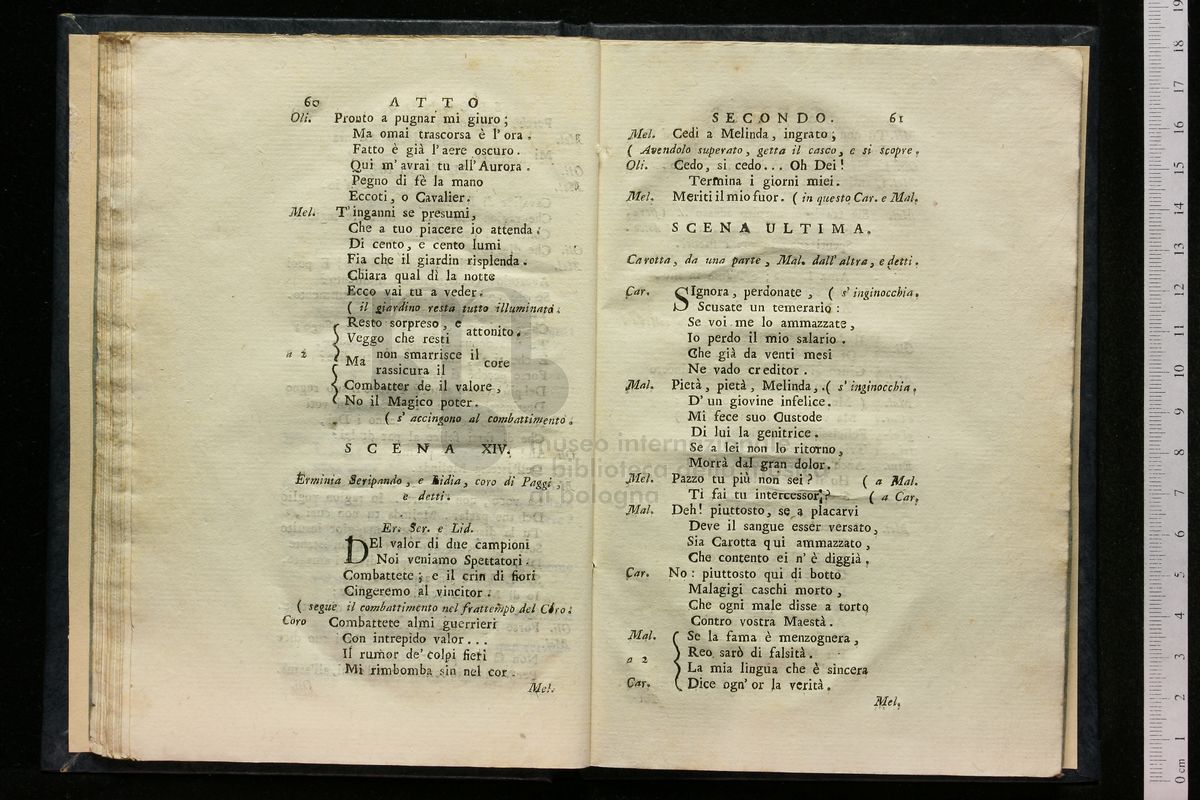 60 ATTO
Oli. Pronto a pugnar mi giuro;
Ma omai trascorsa è l'ora.
Fatto è già l'aere oscuro.
Qui m'avrai tu all'Aurora.
Pegno di fè la mano
Eccoti, o Cavalier.
Mel. T'inganni se presumi,
Che a tuo piacere io attenda.
Di cento, e cento lumi
Fia che il giardin risplenda.
Chiara qual dì la notte
Ecco vai tu a veder.
( il giardino resta tutto illuminato.
Resto sorpreso, e
Veggo che resti attonito.
a 2 Ma non smarrisce il
rassicura il core
Combatter de il valore,
No il Magico poter.
( s'accingono al combattimento.
SCENA XIV.
Erminia Seripando, e Lidia, coro di Paggi,
e detti.
Er. Ser. e Lid.
DEl valor di due campioni
Noi veniamo Spettatori.
Combattete; e il crin di fiori
Cingeremo al vincitor.
( segue il combattimento nel frattempo del Coro.
Coro Combattete almi guerrieri
Con intrepido valor...
Il rumor de' colpi fieri
Mi rimbomba sin nel cor.
Mel.
SECONDO. 61
Mel. Cedi a Melinda, ingrato;
( Avendolo superato, getta il casco, e si scopre.
Oli. Cedo, si cedo... Oh Dei!
Termina i giorni miei.
Mel. Meriti il mio fuor. ( in questo Car. e Mal.
SCENA ULTIMA.
Carotta, da una parte, Mal. dall'altra, e detti.
Car. SIgnora, perdonate, ( s'inginocchia.
Scusate un temerario:
Se voi me lo ammazzate,
Io perdo il mio salario.
Che già da venti mesi
Ne vado creditor.
Mal. Pietà, pietà, Melinda,.( s'inginocchia.
D'un giovine infelice.
Mi fece suo Custode
Di lui la genitrice.
Se a lei non lo ritorno,
Morrà dal gran dolor.
Mel. Pazzo tu più non sei? ( a Mal.
Ti fai tu intercessor? ( a Car.
Mal. Deh! piuttosto, se a placarvi
Deve il sangue esser versato,
Sia Carotta qui ammazzato,
Che contento ei n'è diggià.
Car. No: piuttosto qui di botto
Malagigi caschi morto,
Che ogni male disse a torto
Contro vostra Maestà.
Mal. Se la fama è menzognera,
a 2 Reo sarò di falsità.
La mia lingua che è sincera
Car. Dice ogn'or la verità.
Mel.
museo internazionale
e biblioteca della musica
di bologna
0 cm 1 2 3 4 5 6 7 8 9 10 11 12 13 14 15 16 17 18 19